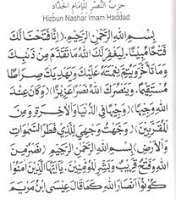 حِزْبُ النَّصْرِ لِلْإِمَامِ الْحَدَّادِ
Hizbun Nashar Imam Haddad
بِسْمِ اللهِ الرَّحْمٰنِ الرَّحِيْمِ، إِنَّا فَتَحْنَا لَكَ
فَتْحًا مُبِيْنًا، لِيَغْفِرَ لَكَ اللهُ مَا تَقَدَّمَ مِنْ ذَنْبِكَ
وَمَا تَأَخَّرَ وَيُتِمَّ نِعْمَتَهُ عَلَيْكَ وَيَهْدِيَكَ صِرَاطًا
مُسْتَقِيْمًا، وَيَنْصُرَكَ اللهُ نَصْرًا عَزِيْزًا
اللهِ وَجِيْهًا فِي الدُّنْيَا وَالْآخِرَةِ وَمِنَ
الْمُقَرَّبِيْنَ وَجَّهْتُ وَجْهِيَ لِلَّذِيْ فَطَرَ السَّمٰوَاتِ
وَالْأَرْضَ بِسْمِ اللهِ الرَّحْمٰنِ الرَّحِيْمِ نَصْرٌ مِنَ
اللهِ وَفَتْحٌ قَرِيْبٌ وَبَشِّرِ الْمُؤْمِنِيْنَ، يَا أَيُّهَا الَّذِيْنَ آمَنُوْا
كُوْنُوْا أَنْصَارَ اللهِ كَمَا قَالَ عِيْسَى ابْنُ مَرْيَمَ